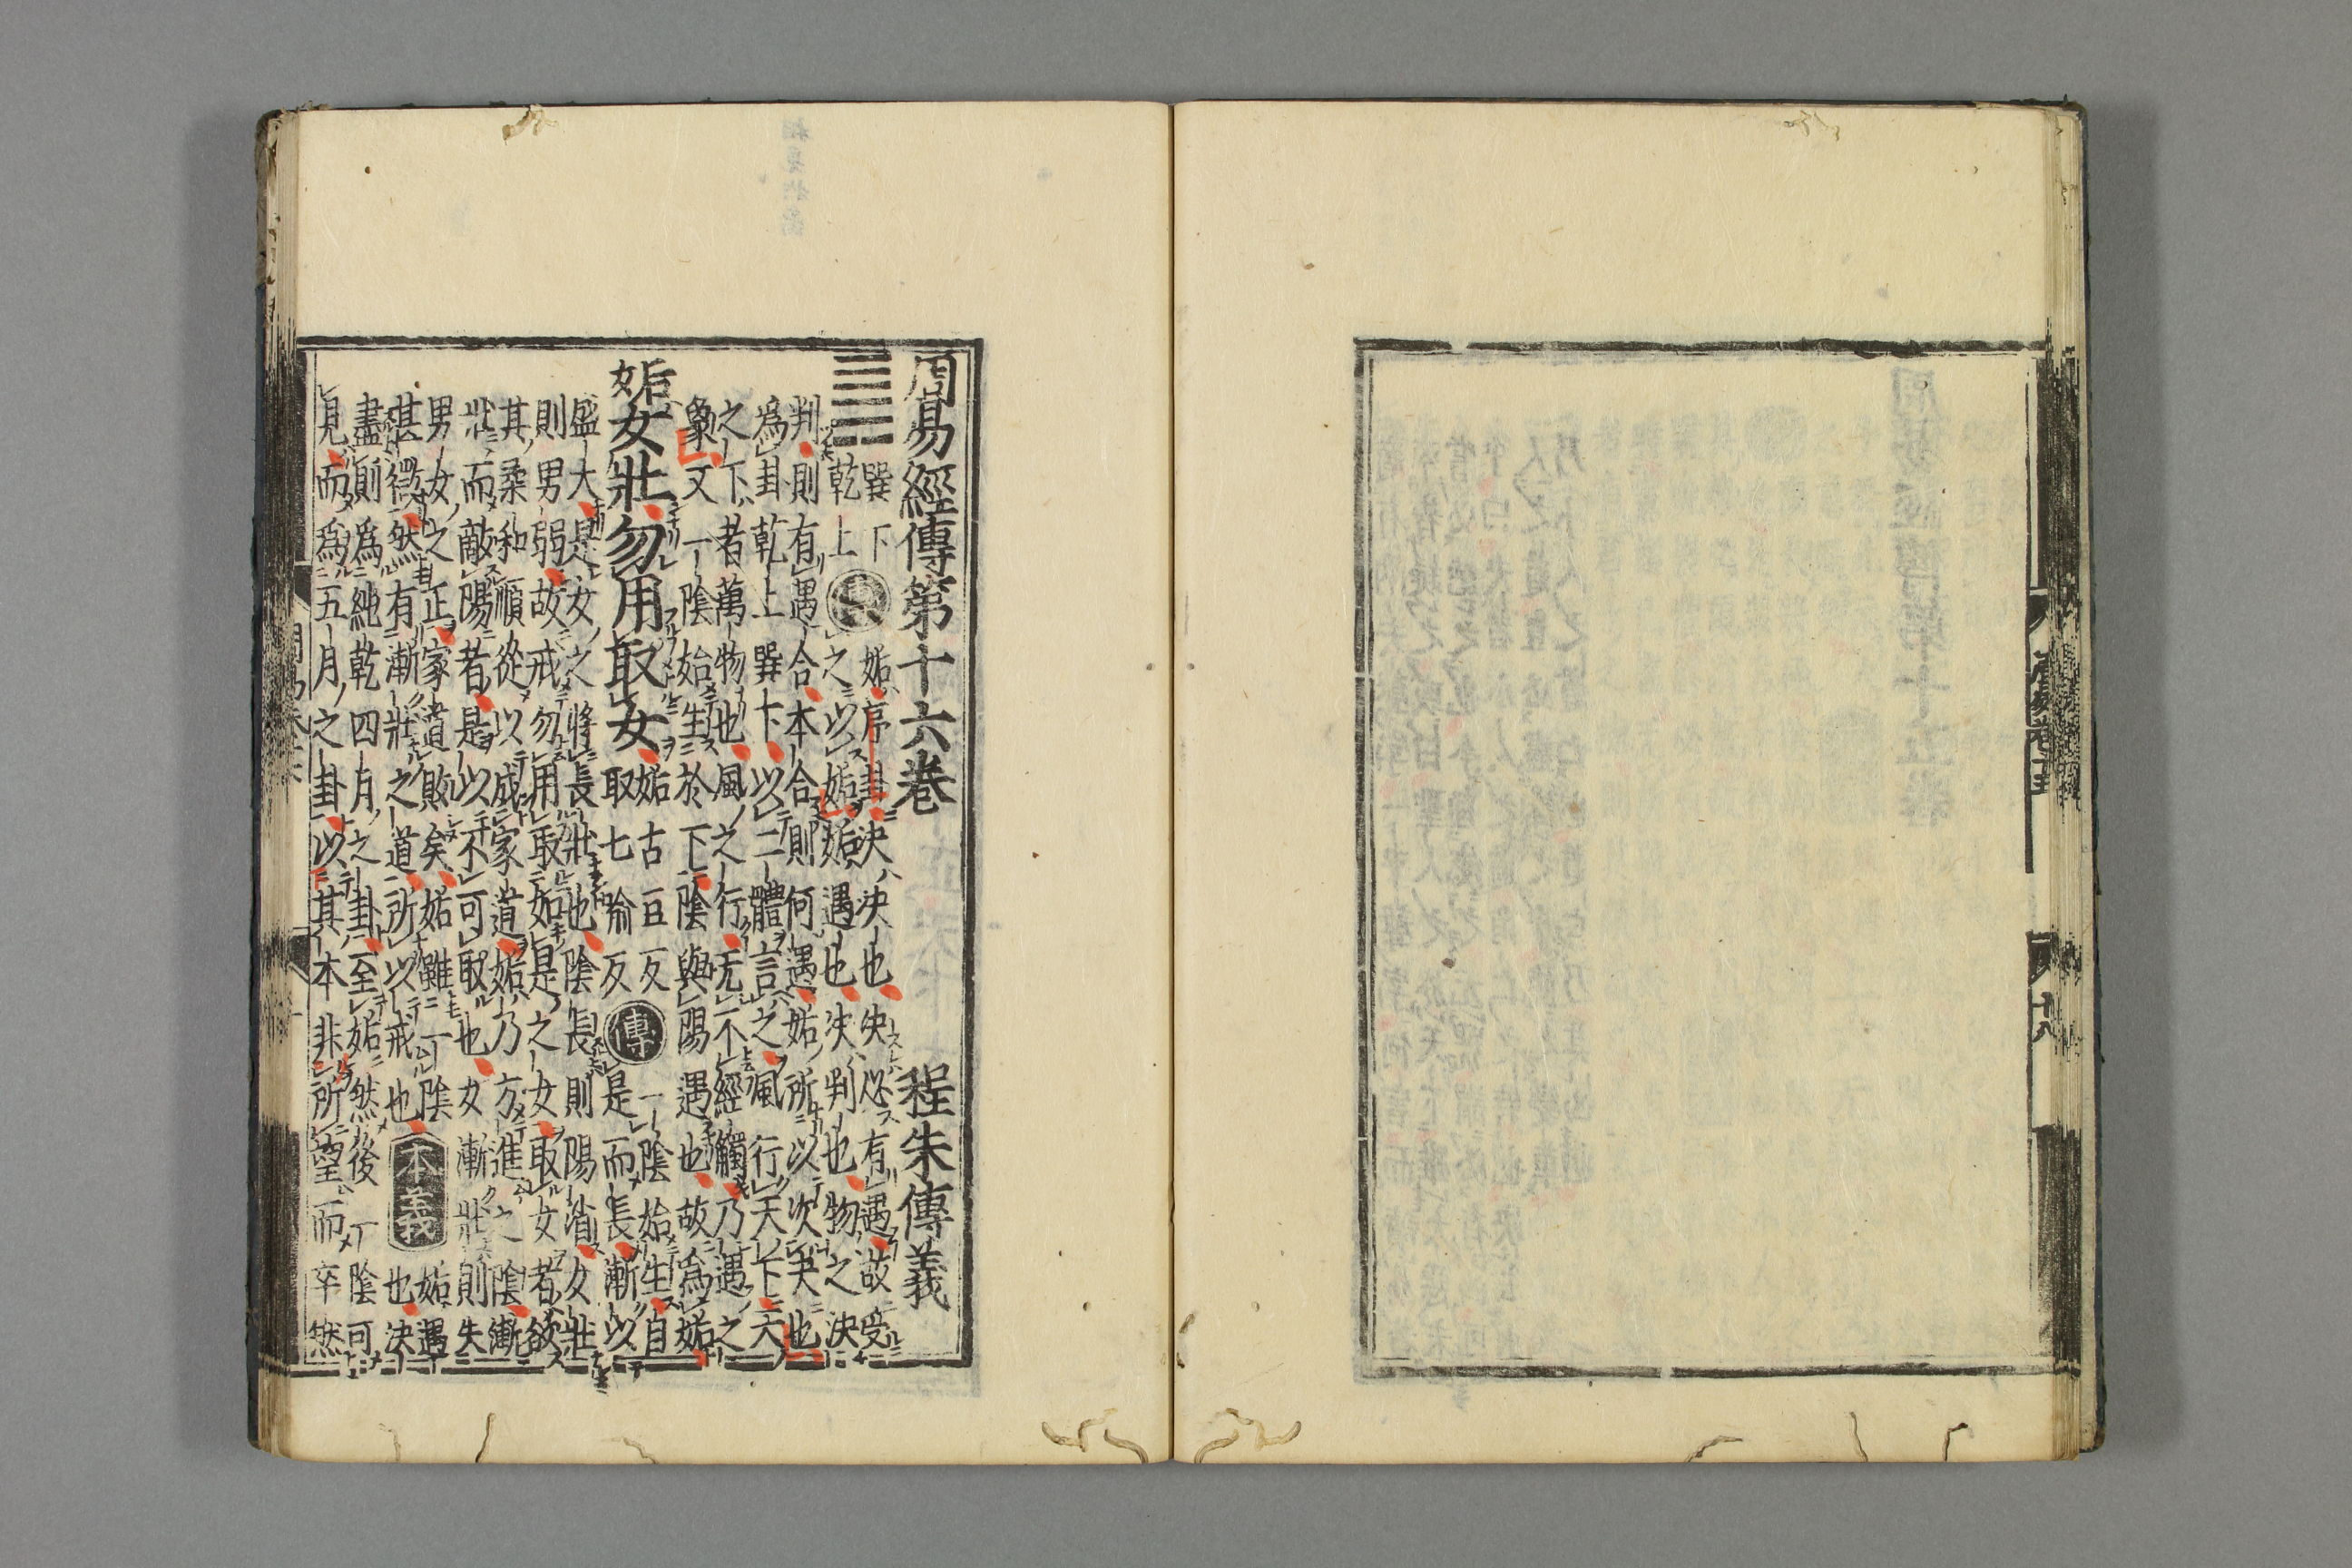 周易經傳第十六卷　程朱傳義
䷫ 巽下乾上 傳 姤序卦決決也決必有遇故受
之以姤姤遇也決判也物之決
判則有遇合本合則何遇姤所以次夬也
爲卦乾上巽下以二體言之風行天下天
之下者萬物也風之行无不經觸乃遇之
象又一陰始生於下陰與陽遇也故爲姤
姤女壯勿用取女 姤古豆反取七喩反 傳 一陰始生自
是而長漸以
盛大是女之將長壯也陰長則陽消女壯
則男弱故戒勿用取如是之女取女者欲
其柔和順從以成家道姤乃方進之陰漸
壯而敵陽者是以不可取也女漸壯則失
男女之正家道敗矣姤雖一陰
甚微然有漸壯之道所以戒也 本義 姤遇也決
盡則爲純乾四月之卦至姤然後一陰可
見而爲五月之卦以其本非所望而卒然
十八